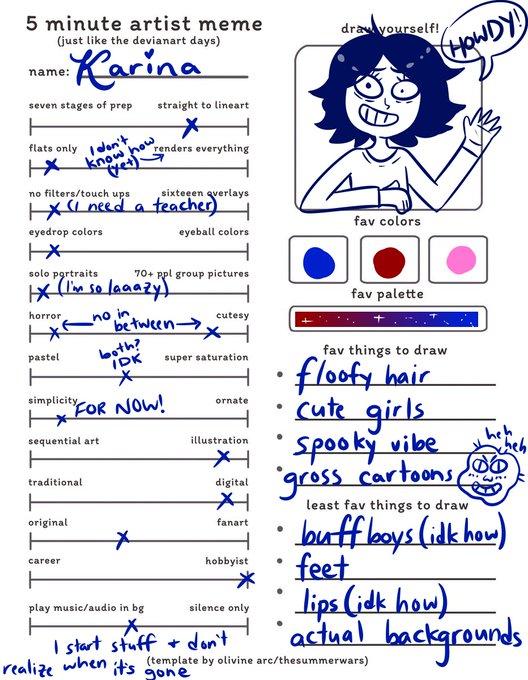 5 minute artist meme
(just like the devianart days)
name: Karina
seven stages of prep straight to lineart
flats only I don't know how (yet) renders everything
no filters/touch ups sixteeen overlays
(I need a teacher)
eyedrop colors eyeball colors
solo portraits 70+ ppl group pictures
(I'm so laaazy)
horror no in between cutesy
pastel both? IDK super saturation
simplicity FOR NOW! ornate
sequential art illustration
traditional digital
original fanart
career hobbyist
play music/audio in bg silence only
I start stuff + don't
realize when it's gone
(template by olivine arc/thesummerwars)
draw yourself!
HOWDY!
fav colors
fav palette
fav things to draw
floofy hair
cute girls
spooky vibe
gross cartoons
heh
heh
least fav things to draw
buff boys (idk how)
feet
lips (idk how)
actual backgrounds